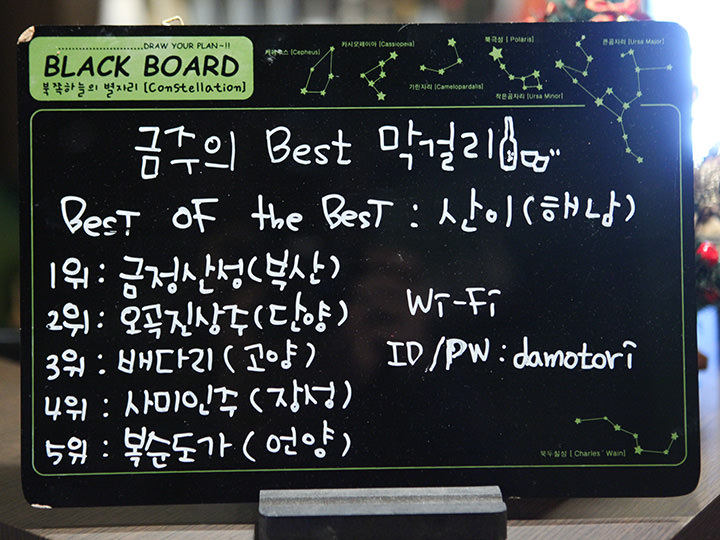 DRAW YOUR PLAN~!!
BLACK BOARD
북쪽하늘의 별자리 [Constellation]
케페우스 [Cepheus]
카시오페이아 [Cassiopeia]
기린자리 [Camelopardalis]
북극성 [ Polaris]
작은곰자리 [Ursa Minor]
큰곰자리 [Ursa Major]
금주의 Best 막걸리
BesT OF the BesT : 산이(해남)
1위 : 금정산성(부산)
2위 : 오곡진상주(단양)
3위 : 배다리 (고양)
4위 : 사미인주 (장성)
5위 : 복순도가 (언양)
Wi-Fi
ID/PW : damotori
북두칠성 [ Charles´ Wain]